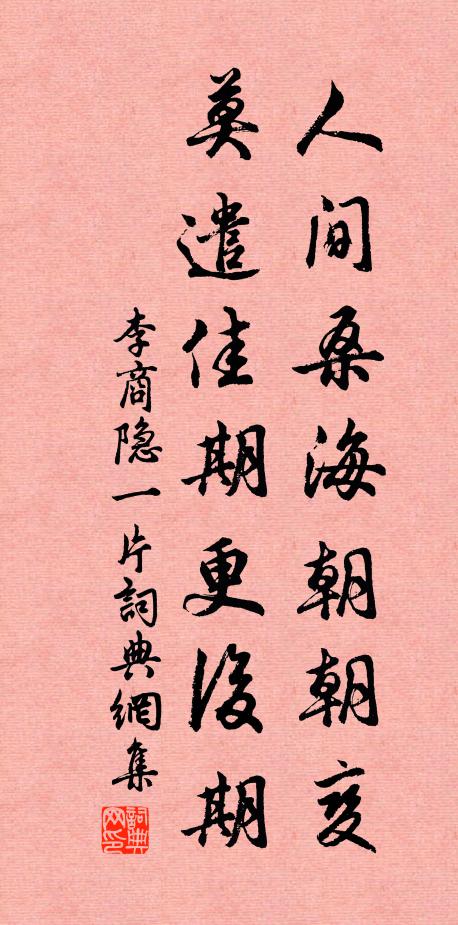 人间桑海朝朝变
莫遣佳期更後期
李商隐一片詞典網集
詞典网印